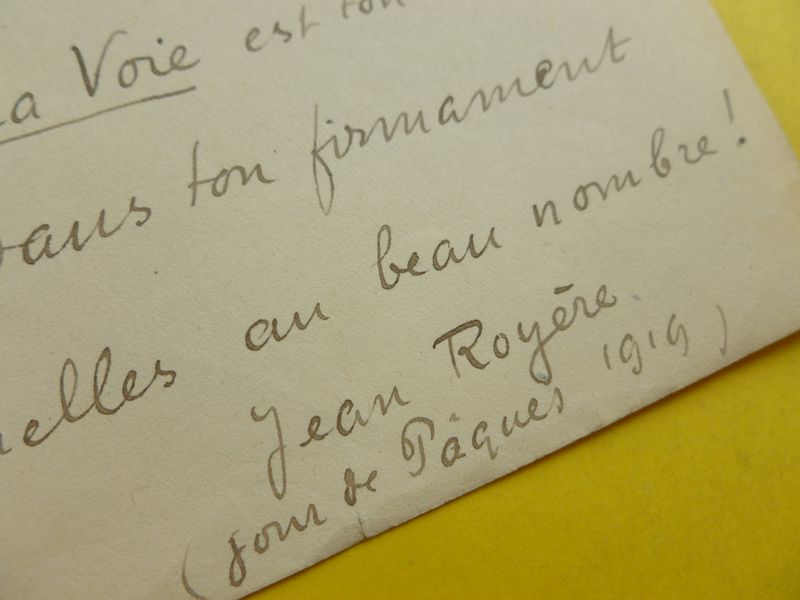 La Voie est ton
dans ton firmament
au beau nombre!
Jean Royère
(jour de Pâques 1919)